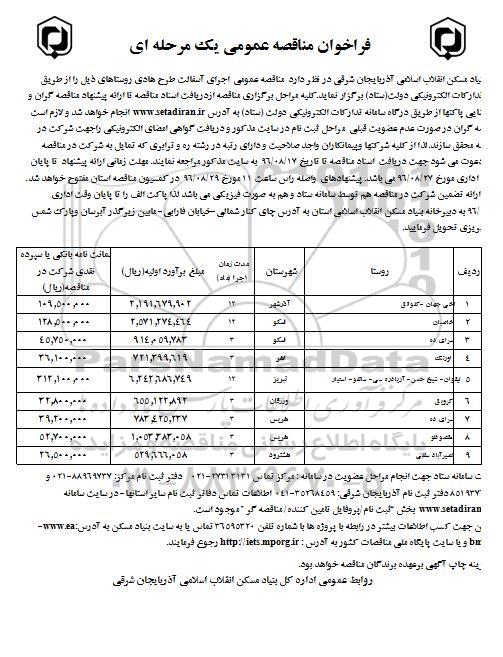 فراخوان مناقصه عمومی یک مرحله ای
یاد مسکن انقلاب اسلامی آذربایجان شرقی در نظر دارد مناقصه عمومی اجرای آسفالت طرح هادی روستاهای ذیل را از طریق
تدارکات الکترونیکی دولت(ستاد) برگزار نماید.کلیه مراحل برگزاری مناقصه ازدریافت اسناد مناقصه تا ارائه پیشنهاد مناقصه گران و
پاکتها از طریق درگاه سامانه تدارکات الکترونیکی دولت (ستاد) به آدرس www.setadiran.ir انجام خواهد شد و لازم است
گران در صورت عدم عضویت قبلی مراحل ثبت نام در سایت مذکور و دریافت گواهی امضای الکترونیکی راجهت شرکت در
محقق سازند.لذا از کلیه شرکتها وپیمانکاران واجد صلاحیت و دارای رتبه در رشته ره و ترابری که تمایل به شرکت در مناقصه
دعوت می شود جهت دریافت اسناد مناقصه تا تاریخ ۹۶/۰۸/۱۷ به سایت مذکور مراجعه نمایند. مهلت زمانی ارائه پیشنهاد تا پایان
اداری مورخ ۹۶/۰۸/۲۷ می باشد. پیشنهادهای واصله راس ساعت ۱۱ مورخ ۹۶/۰۸/۲۹ در کمسیون مناقصه استان مفتوح خواهد شد.
ارائه تضمین شرکت در مناقصه هم توسط سامانه ستاد و هم به صورت فیزیکی می باشد لذا پاکت الف را تا پایان وقت اداری
به دبیرخانه بنیاد مسکن انقلاب اسلامی استان به آدرس چای کنار شمالی-خیابان فارابی-مابین زیرگذر آبرسان وپارک شمس
تبریزی تحویل فرمایید.
ردیف روستا شهرستان مدت زمان اجرا (ماه) مبلغ برآورد اولیه(ریال) ضمانت نامه بانکی یا سپرده نقدی شرکت در مناقصه(ریال)
۱ اخی جهان - آذرشهر ۱۲ ۲,۱۹۱,۶۷۹,۹۰۲ ۱۰۹,۵۰۰,۰۰۰
۲ خاصبان اسکو ۱۲ ۲,۵۷۱,۲۷۴,۴۶۴ ۱۲۸,۵۰۰,۰۰۰
۳ سرای ده اسکو ۳ ۹۱۴,۰۵۹,۷۸۳ ۴۵,۷۵۰,۰۰۰
۴ اهر ۳ ۷۲۱,۳۹۹,۶۱۹ ۳۶,۱۰۰,۰۰۰
۵ شیخ حسن- تبریز ۱۲ ۶,۲۴۲,۶۸۶,۷۴۹ ۳۱۲,۱۰۰,۰۰۰
۶ کرویق ورزقان ۳ ۶۵۵,۱۲۲,۸۹۲ ۳۲,۸۰۰,۰۰۰
۷ سرای ده هریس ۳ ۷۸۳,۴۲۵,۲۳۷ ۳۹,۲۰۰,۰۰۰
۸ مقصودلو هریس ۳ ۱,۰۵۳,۳۸۳,۰۵۸ ۵۲,۷۰۰,۰۰۰
۹ نصیرآباد سفلی هشترود ۳ ۵۲۹,۶۶۶,۰۵۸ ۲۶,۵۰۰,۰۰۰
سامانه ستاد جهت انجام مراحل عضویت در سامانه : مرکز تماس ۲۷۳۱۳۱۳۱-۰۲۱ دفتر ثبت نام مرکز: ۸۸۹۶۹۷۳۷-۰۲۱ و
۸۵۱۹۳۷ دفتر ثبت نام آذربایجان شرقی: ۳۵۲۶۸۴۵۹-۰۴۱ اطلاعات تماس دفاتر ثبت نام سایر استانها - در سایت سامانه
www.setadiran بخش "ثبت نام/پروفایل تامین کننده/مناقصه گر" موجود است.
جهت کسب اطلاعات بیشتر در رابطه با پروژه ها با شماره تلفن ۳۶۵۹۵۳۲۰ تماس یا به سایت بنیاد مسکن به آدرس:www.ea-
bm و یا سایت پایگاه ملی مناقصات کشور به آدرس : http://iets.mporg.ir رجوع فرمایند.
هزینه چاپ آگهی برعهده برندگان مناقصه خواهد بود.
روابط عمومی اداره کل بنیاد مسکن انقلاب اسلامی آذربایجان شرقی
ParsNamadData